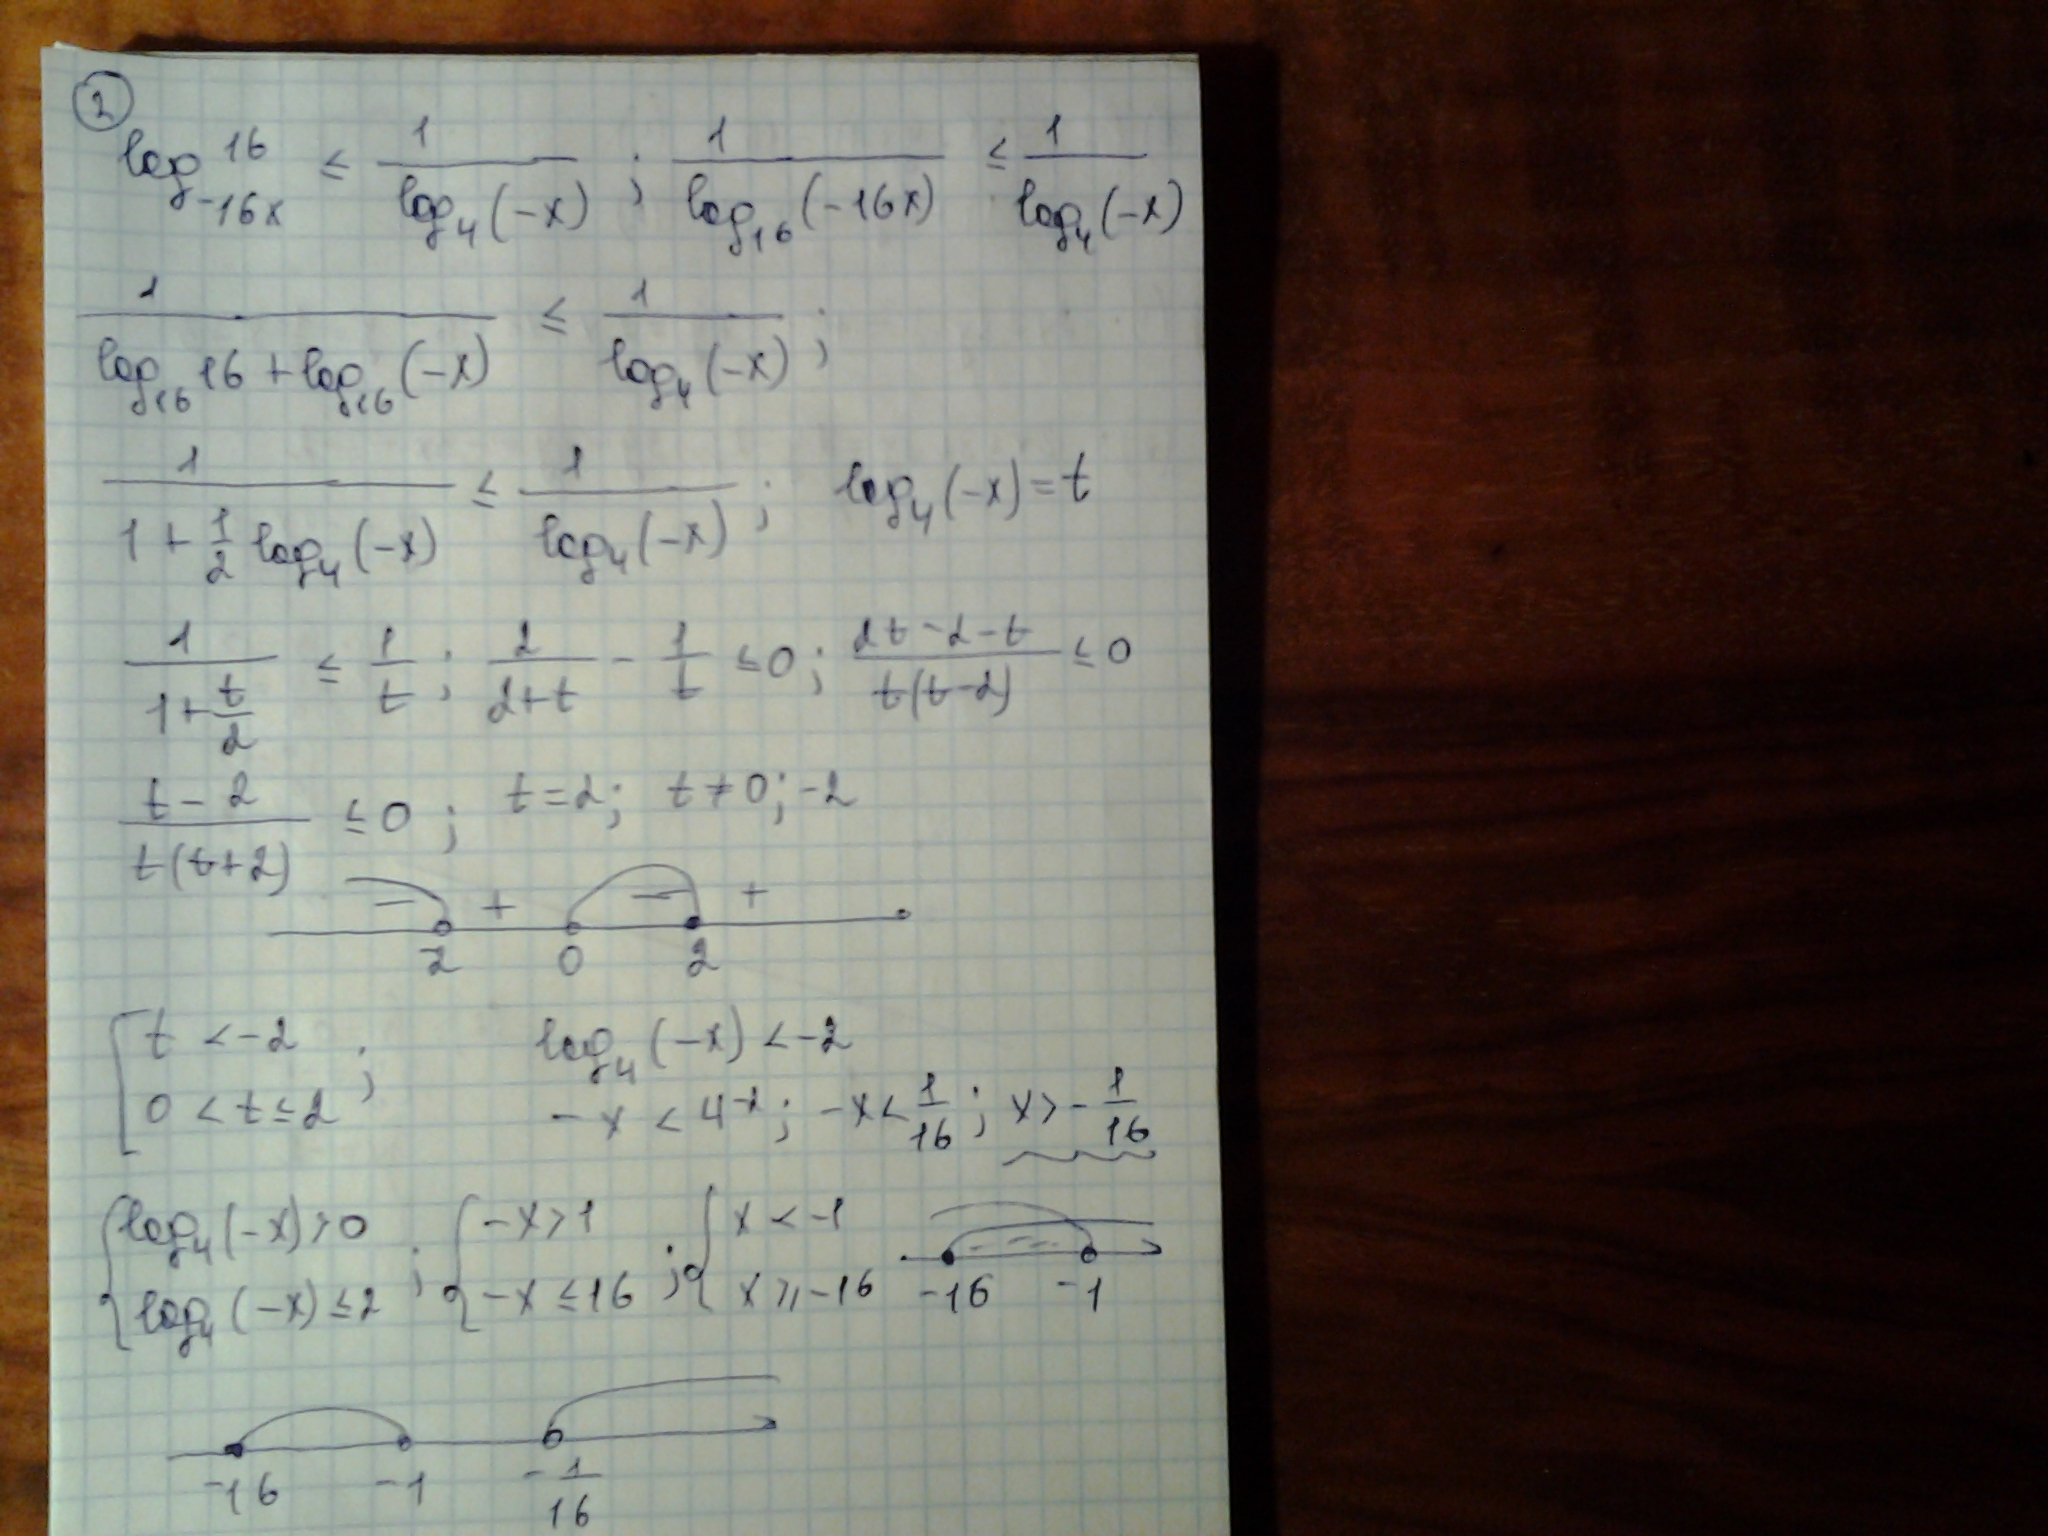 2
log_{-16x} 16 ≤ 1/log₄(-x) ; 1/log₁₆(-16x) ≤ 1/log₄(-x)
1/(log₁₆16 + log₁₆(-x)) ≤ 1/log₄(-x) ;
1/(1 + 1/2 log₄(-x)) ≤ 1/log₄(-x) ; log₄(-x) = t
1/(1 + t/2) ≤ 1/t ; 2/(2+t) - 1/t ≤ 0 ; (2t-2-t)/(t(t-2)) ≤ 0
(t-2)/(t(t+2)) ≤ 0 ; t = 2 ; t ≠ 0 ; -2
- + - +
-2 0 2
[ t < -2 ; log₄(-x) < -2
0 < t ≤ 2 ; -x < 4⁻² ; -x < 1/16 ; x > -1/16
{ log₄(-x) > 0 ; { -x > 1 ; { x < -1
log₄(-x) ≤ 2 ; -x ≤ 16 ; x ⩾ -16 -16 -1
-16 -1 -1/16